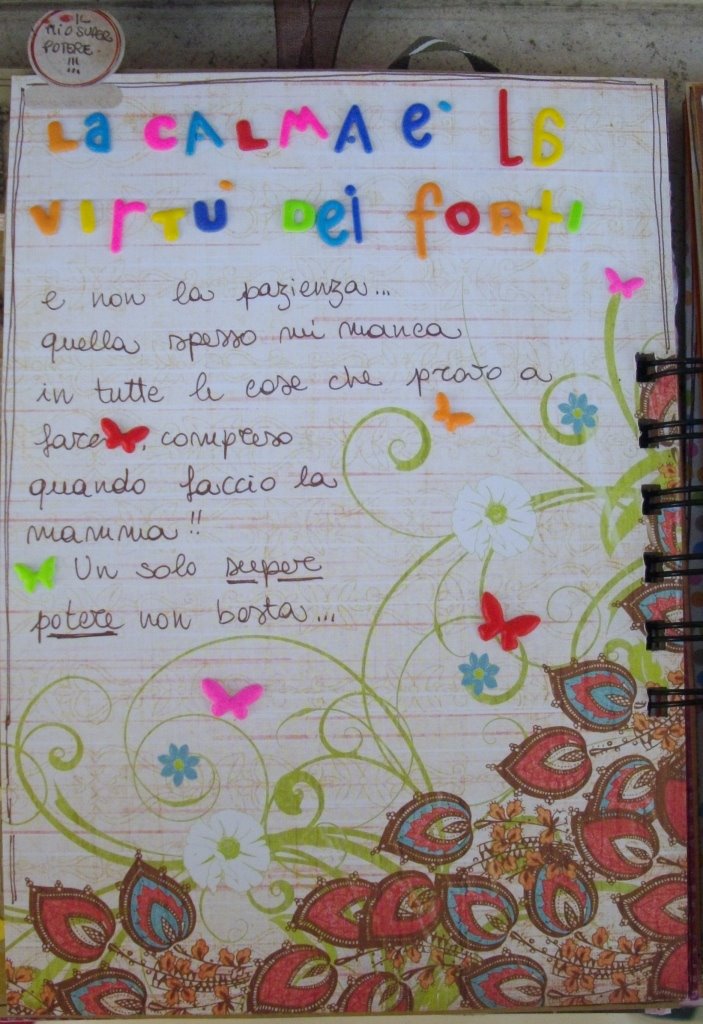 IL
MIO SUPER
POTERE
!!!
La CALMA e' La
VIrTU' Dei forti
e non la pazienza...
quella spesso mi manca
in tutte le cose che provo a
fare, compreso
quando faccio la
mamma!!
Un solo super
potere non basta...